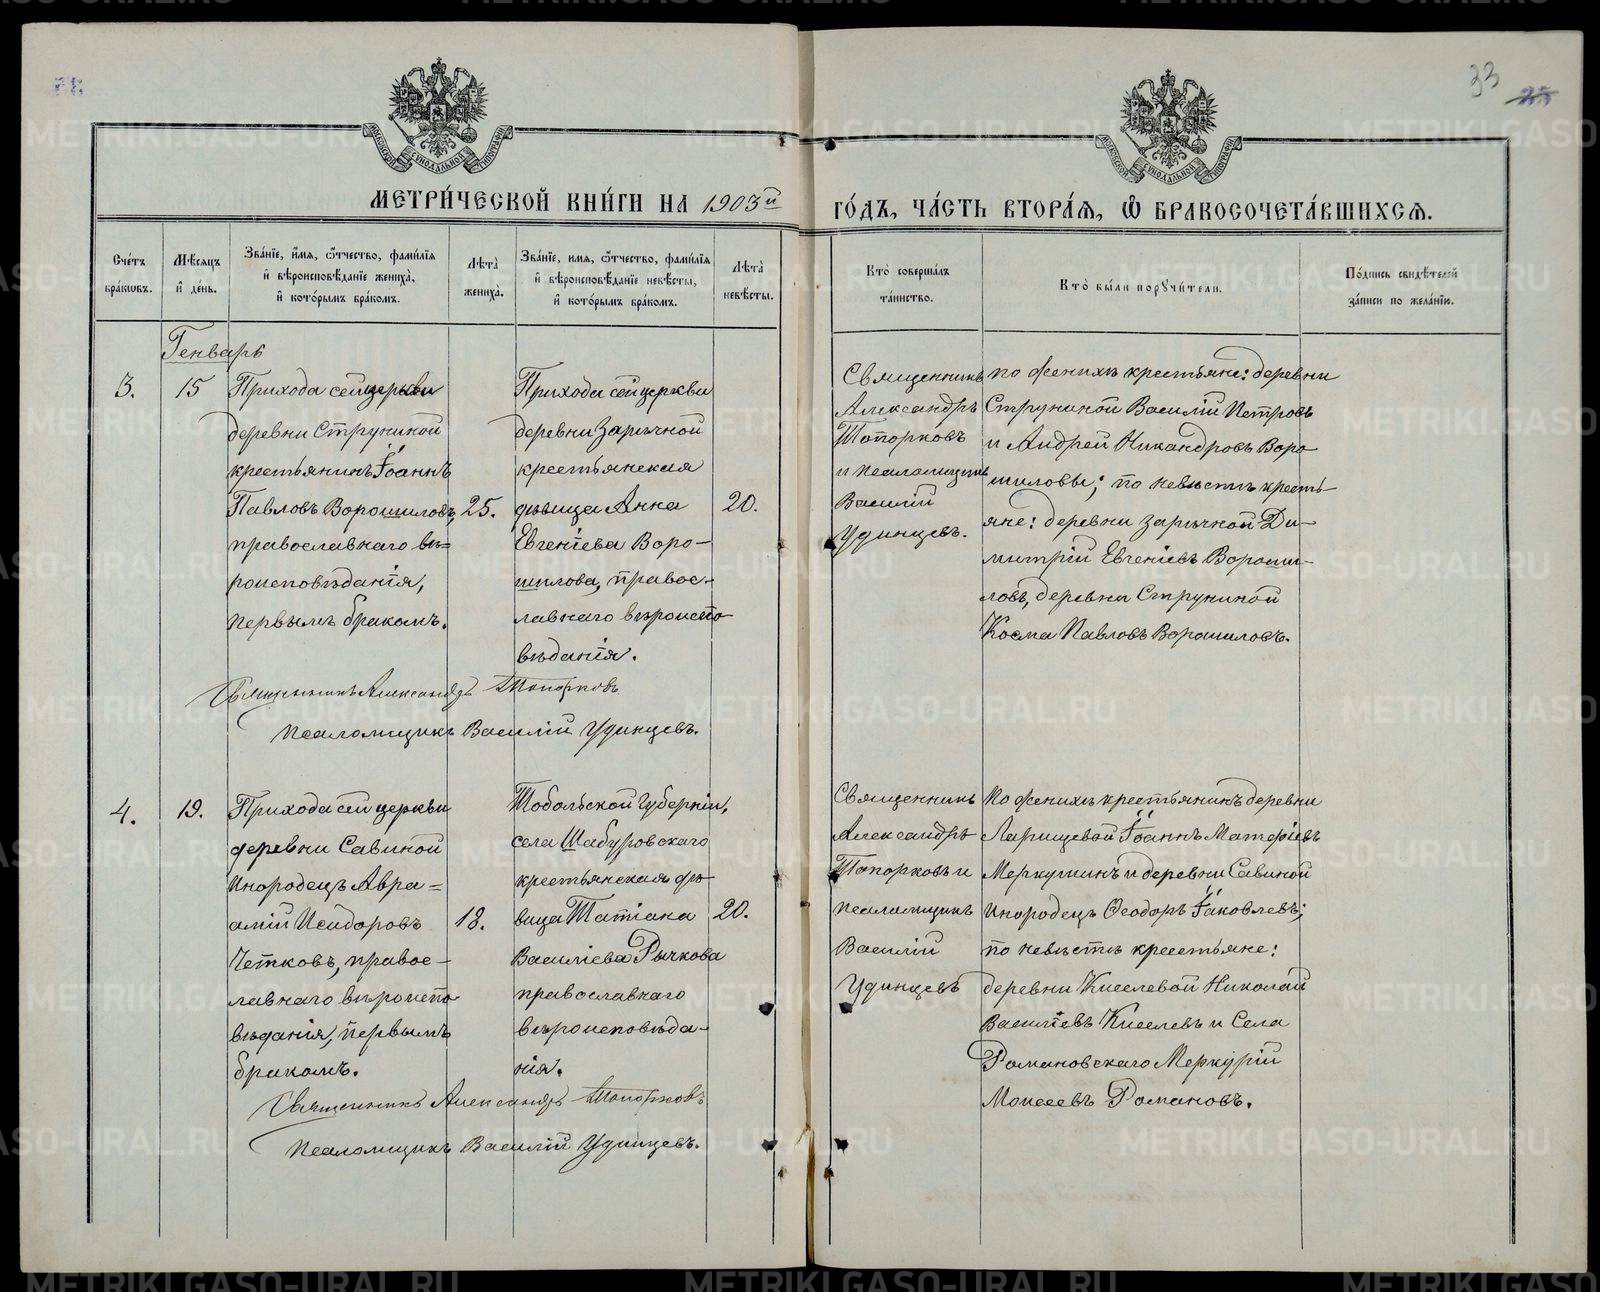 33
25
МОСКОВСКОЙ СѴНОДАЛЬНОЙ ТИПОГРАФІИ
МОСКОВСКОЙ СѴНОДАЛЬНОЙ ТИПОГРАФІИ
МЕТРИ́ЧЕСКОЙ КНИ́ГИ НА 1903й ГО́ДЪ, ЧА́СТЬ ВТОРА́Я, Ѽ БРАКОСОЧЕТА́ВШИХСЯ.
Сче́тъ бра́ковъ.
Мѣ́сяцъ и҆ де́нь.
Зва́нїе, и҆́мя, ѻ҆́тчество, фами́лїя и҆ вѣроисповѣ́данїе жениха̀, и҆ кото́рымъ бра́комъ.
Лѣ́та̀ жениха̀.
Зва́нїе, и҆́мя, ѻ҆́тчество, фами́лїя и҆ вѣроисповѣ́данїе невѣ́сты, и҆ кото́рымъ бра́комъ.
Лѣ́та̀ невѣ́сты.
Кто̀ соверша́лъ та́инство.
Кто̀ бы́ли порꙋчи́тели.
По́дпись свидѣ́телей за́писи по жела́нїю.
Генварь
3.
15
Прихода сей церкви
деревни Струниной
крестьянинъ Іоаннъ
Павловъ Ворошиловъ,
православнаго вѣ=
роисповѣданія,
первымъ бракомъ.
25.
Прихода сей церкви
деревни Зарѣчной
крестьянская
дѣвица Анна
Евгеніева Воро-
шилова, правос-
лавнаго вѣроиспо
вѣданія.
20.
Священникъ
Александръ
Топорковъ
и псаломщикъ
Василій
Удинцевъ.
по женихѣ крестьяне: деревни
Струниной Василій Петровъ
и Андрей Никандровъ Воро
шиловы; по невѣстѣ кресть-
яне: деревни Зарѣчной Ди-
митрій Евгеніевъ Вороши-
ловъ, деревни Струниной
Косма Павловъ Ворошиловъ.
Священникъ Александръ Топорковъ
Псаломщикъ Василій Удинцевъ.
4.
19.
Прихода сей церкви
деревни Савиной
Инородецъ Авра=
амій Исидоровъ
Четковъ, правос-
лавнаго вѣроиспо
вѣданія, первымъ
бракомъ.
18.
Тобольской губерніи,
села Шабуровскаго
крестьянская дѣ-
вица Татіана
Василіева Рычкова
православнаго
вѣроисповѣда-
нія.
20.
Священникъ
Александръ
Топорковъ и
псаломщикъ
Василій
Удинцевъ
По женихѣ крестьянинъ деревни
Ларищевой Іоаннъ Матфіевъ
Меркушинъ и деревни Савиной
Инородецъ Ѳеодоръ Іаковлевъ;
по невѣстѣ крестьяне:
деревни Киселевой Николай
Василіевъ Киселевъ и Села
Романовскаго Меркурій
Моисеевъ Романовъ.
Священникъ Александръ Топорковъ
Псаломщикъ Василій Удинцевъ.
METRIKI.GASO-URAL.RU